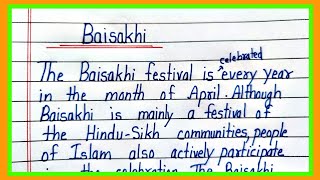 Baisakhi
The Baisakhi festival is celebrated every year
in the month of April. Although
Baisakhi is mainly a festival of
the Hindu-Sikh communities, people
of Islam also actively participate
in the celebration. The Baisakhi